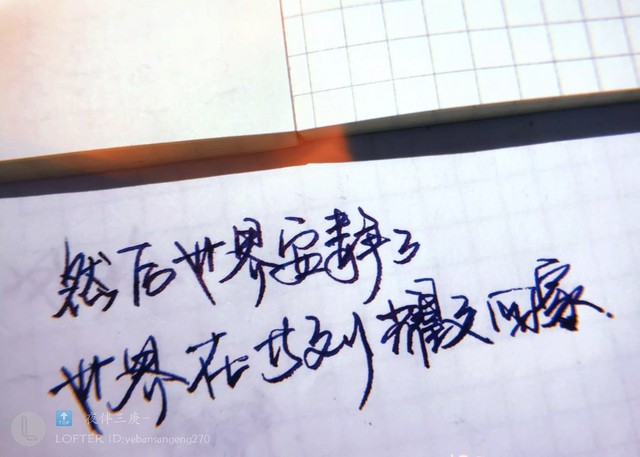 然后世界安静了
世界在等刘耀文回家.
TOP 夜伴三庚~
LOFTER ID:yebansangeng270